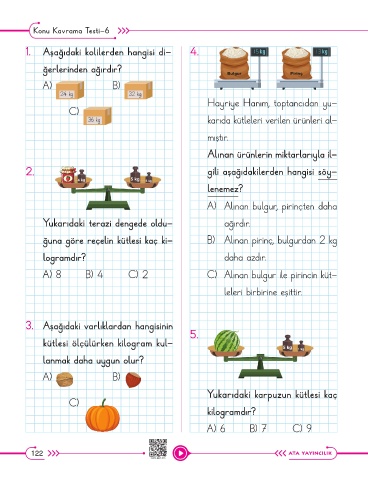 Konu Kavrama Testi-6
1. Aşağıdaki kolilerden hangisi di-
ğerlerinden ağırdır?
A) 34 kg
B) 32 kg
C) 36 kg
2.
Yukarıdaki terazi dengede oldu-
ğuna göre reçelin kütlesi kaç ki-
logramdır?
A) 8 B) 4 C) 2
3. Aşağıdaki varlıklardan hangisinin
kütlesi ölçülürken kilogram kul-
lanmak daha uygun olur?
A) B)
C)
4.
Bulgur
Pirinç
Hayriye Hanım, toptancıdan yu-
karıda kütleleri verilen ürünleri al-
mıştır.
Alınan ürünlerin miktarlarıyla il-
gili aşağıdakilerden hangisi söy-
lenemez?
A) Alınan bulgur, pirinçten daha
ağırdır.
B) Alınan pirinç, bulgurdan 2 kg
daha azdır.
C) Alınan bulgur ile pirincin küt-
leleri birbirine eşittir.
5.
Yukarıdaki karpuzun kütlesi kaç
kilogramdır?
A) 6 B) 7 C) 9
122
ATA YAYINCILIK